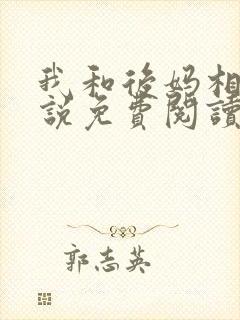 我和後妈相
說免費閱讀
郭志英